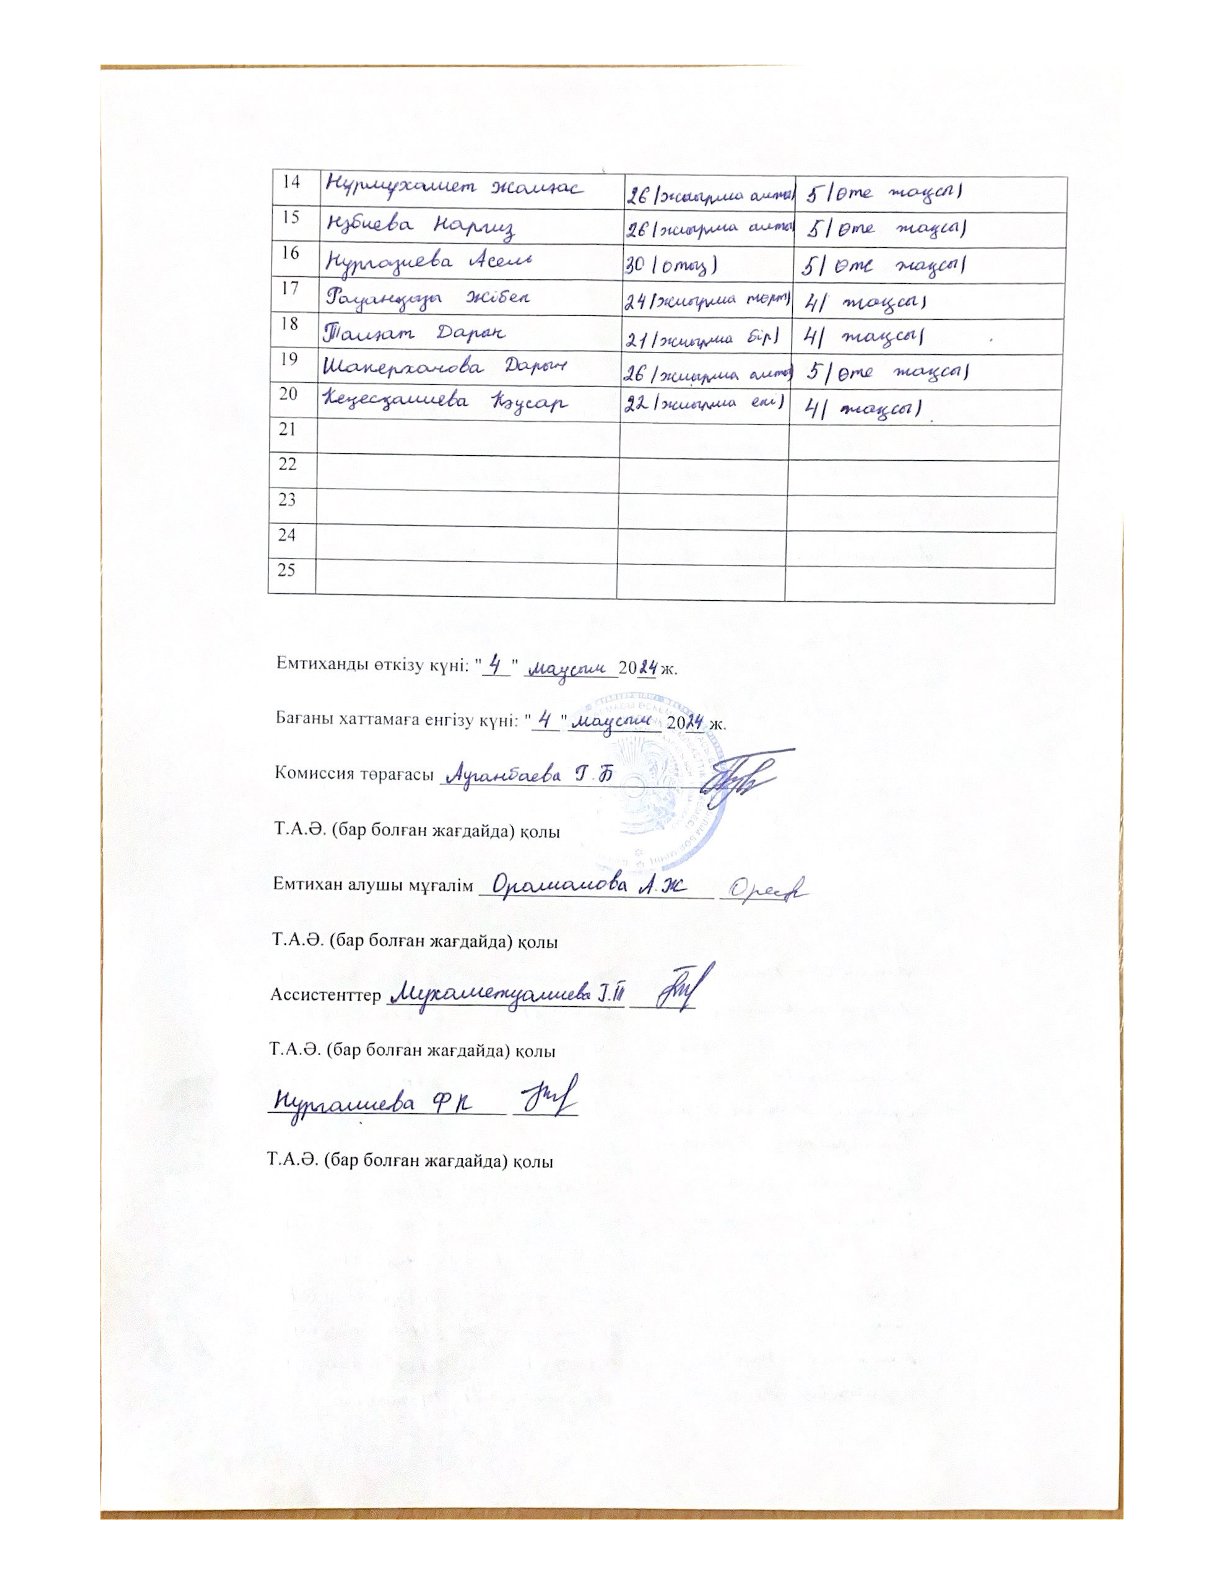 14 Нұрмұхамет Жалғас 26 (жиырма алты) 5 (өте жақсы)
15 Нәбиева Наргиз 26 (жиырма алты) 5 (өте жақсы)
16 Нұрғазиева Асель 30 (отыз) 5 (өте жақсы)
17 Рауанқызы Жібек 24 (жиырма төрт) 4 (жақсы)
18 Талғат Дархан 21 (жиырма бір) 4 (жақсы)
19 Шакерханова Дарын 26 (жиырма алты) 5 (өте жақсы)
20 Кеңесқалиева Кәусар 22 (жиырма екі) 4 (жақсы)
21
22
23
24
25
Емтиханды өткізу күні: "4" маусым 2024 ж.
Бағаны хаттамаға енгізу күні: "4" маусым 2024 ж.
Комиссия төрағасы Ауганбаева Г.Б
Т.А.Ә. (бар болған жағдайда) қолы
Емтихан алушы мұғалім Оралманова А.Ж
Т.А.Ә. (бар болған жағдайда) қолы
Ассистенттер Мухаметжалиева Г.Т
Т.А.Ә. (бар болған жағдайда) қолы
Нургалиева Ф К
Т.А.Ә. (бар болған жағдайда) қолы